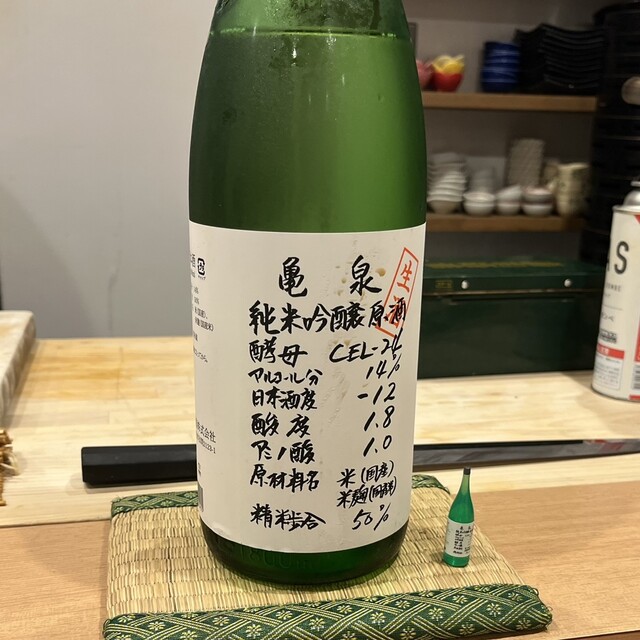 亀泉
生酒
純米吟醸原酒
酵母 CEL-24
アルコール分 14%
日本酒度 -12
酸度 1.8
アミノ酸 1.0
原材料名 米(国産)
米麹(国産米)
精米歩合 50%
株式会社